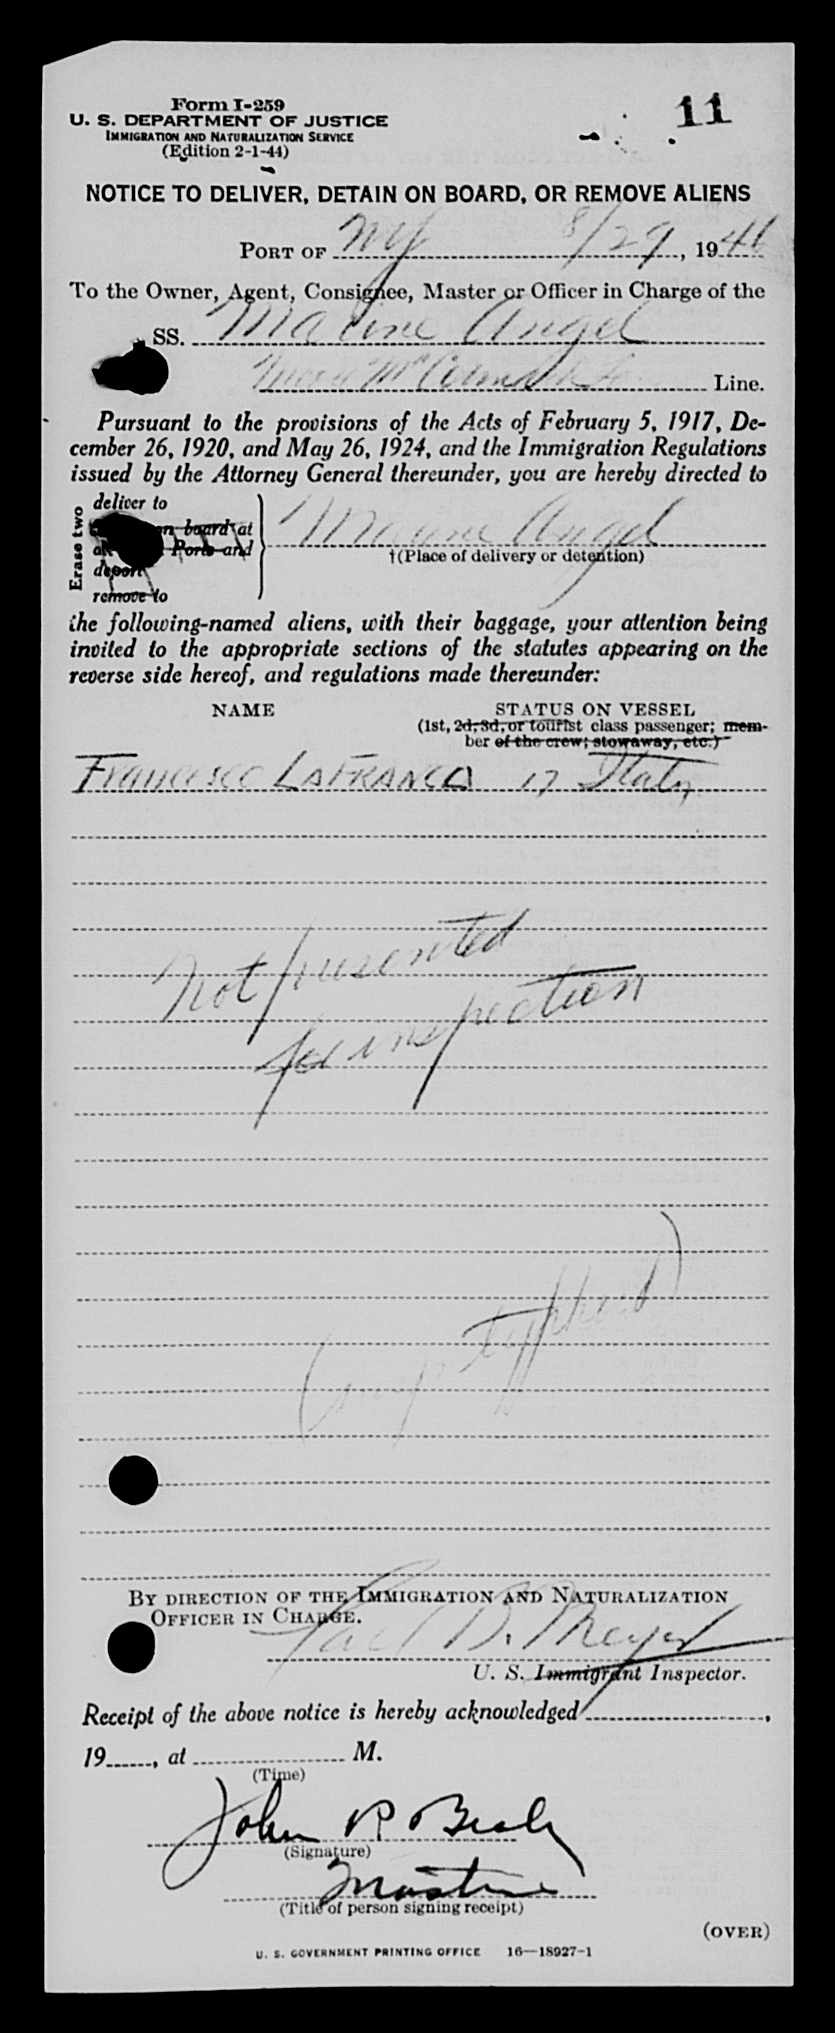 Form I-259
U. S. DEPARTMENT OF JUSTICE
IMMIGRATION AND NATURALIZATION SERVICE
(Edition 2-1-44)
11
NOTICE TO DELIVER, DETAIN ON BOARD, OR REMOVE ALIENS
PORT OF NY 8/29, 1946
To the Owner, Agent, Consignee, Master or Officer in Charge of the
SS. Marine Angel
Line.
Pursuant to the provisions of the Acts of February 5, 1917, De-
cember 26, 1920, and May 26, 1924, and the Immigration Regulations
issued by the Attorney General thereunder, you are hereby directed to
Erase two
deliver to
on board at
Ports and
deport
remove to
Marine Angel
†(Place of delivery or detention)
the following-named aliens, with their baggage, your attention being
invited to the appropriate sections of the statutes appearing on the
reverse side hereof, and regulations made thereunder:
NAME
STATUS ON VESSEL
(1st, 2d, 3d, or tourist class passenger; mem-
ber of the crew; stowaway, etc.)
Francesco LAFRANCA 17 Italy
Not presented
for inspection
By DIRECTION OF THE IMMIGRATION AND NATURALIZATION
OFFICER IN CHARGE.
U. S. Immigrant Inspector.
Receipt of the above notice is hereby acknowledged ,
19 , at M.
(Time)
John R
(Signature)
Master
(Title of person signing receipt)
(OVER)
U. S. GOVERNMENT PRINTING OFFICE 16—18927-1